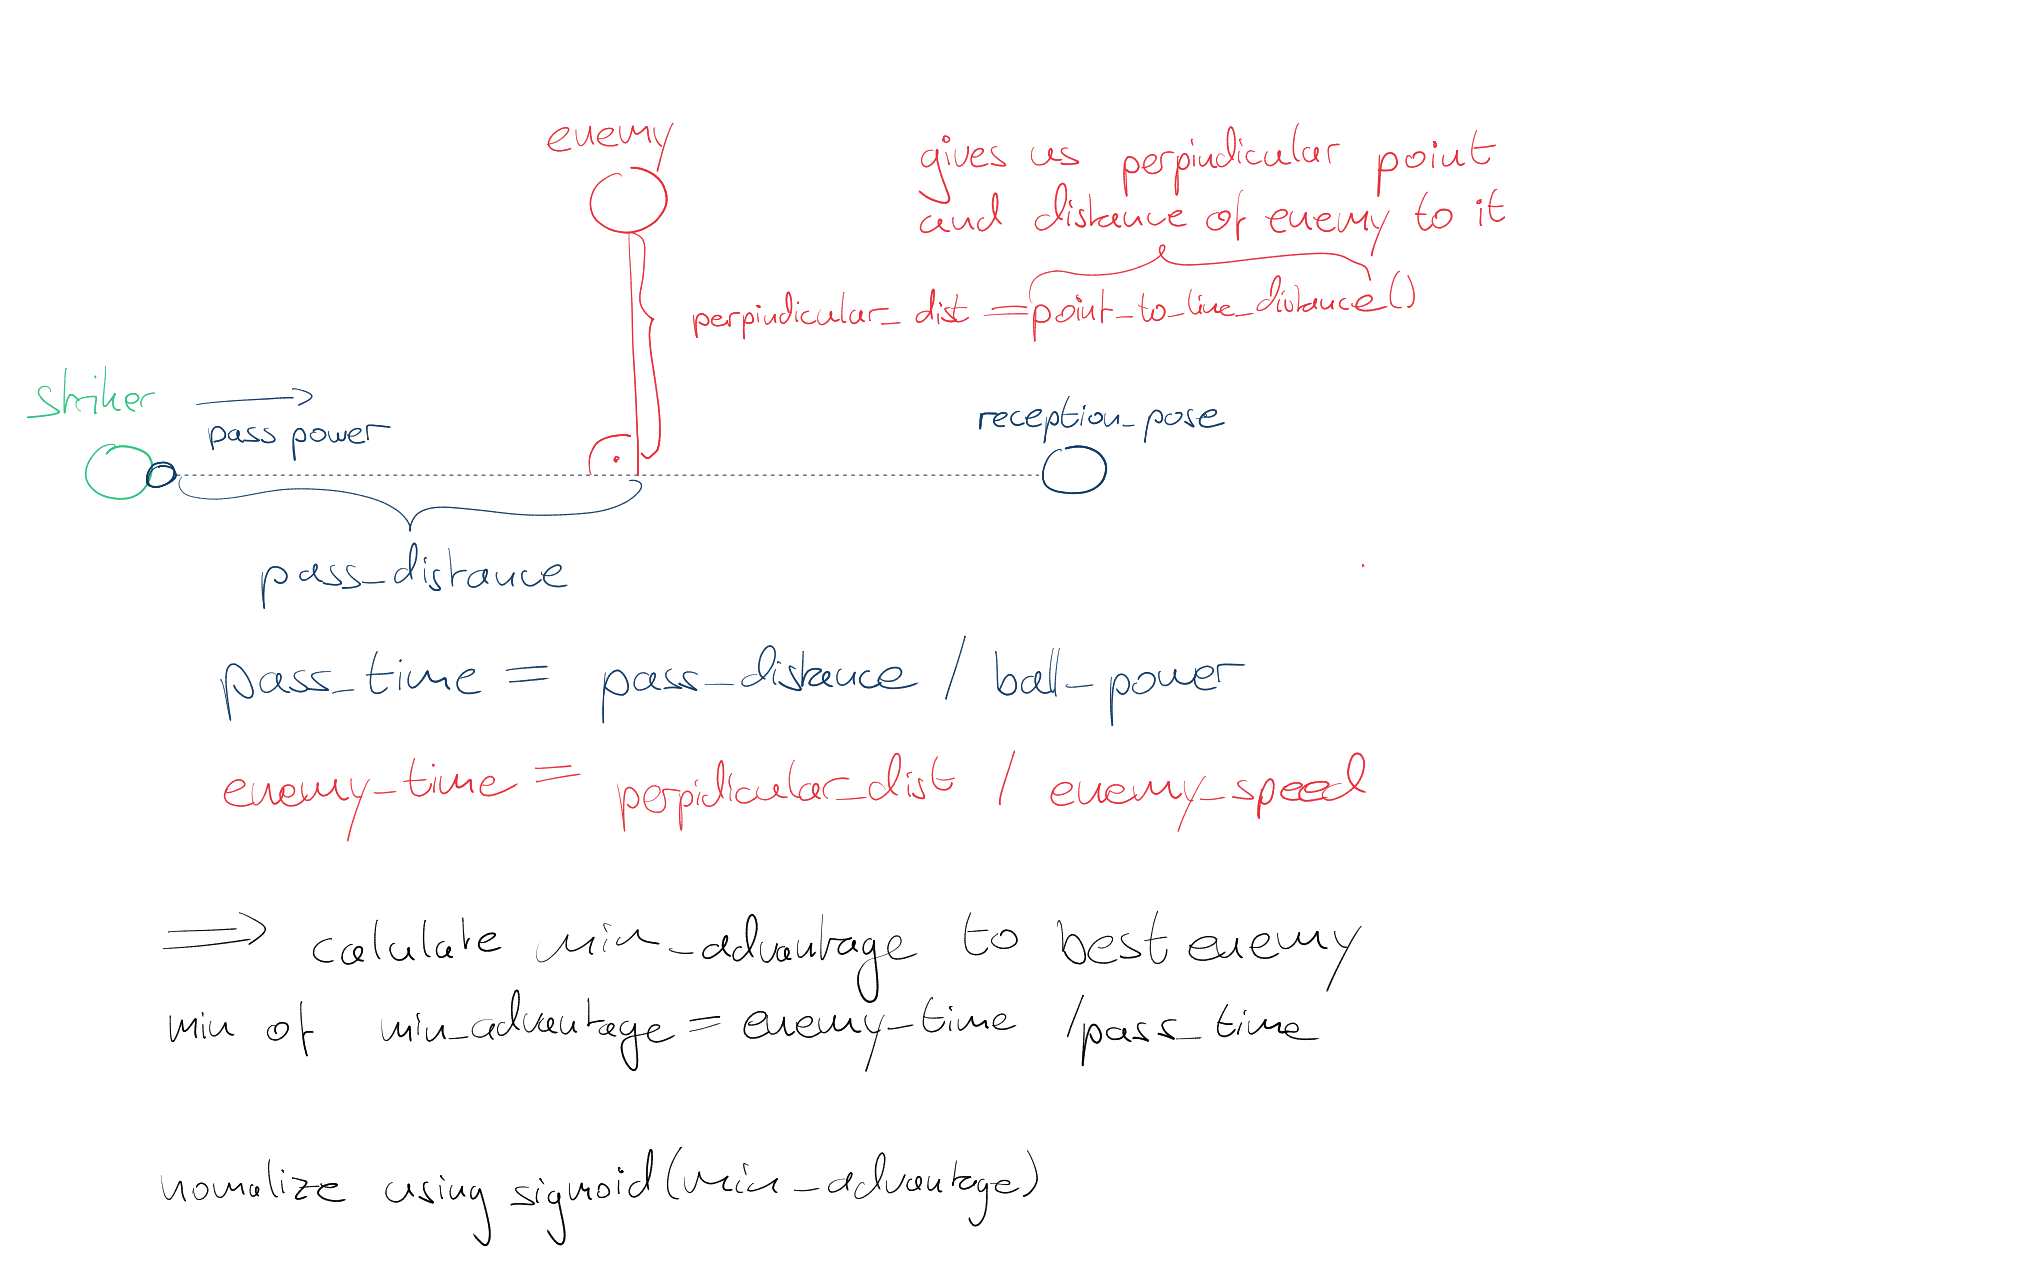 enemy
gives us perpindicular point
and distance of enemy to it
perpindicular_dist = point_to_line_distance()
striker
pass power
reception_pose
pass_distance
pass_time = pass_distance / ball_power
enemy_time = perpidicular_dist / enemy_speed
⇒ calulate min_advantage to best enemy
min of min_advantage = enemy_time / pass_time
nomalize using sigmoid(min_advantage)